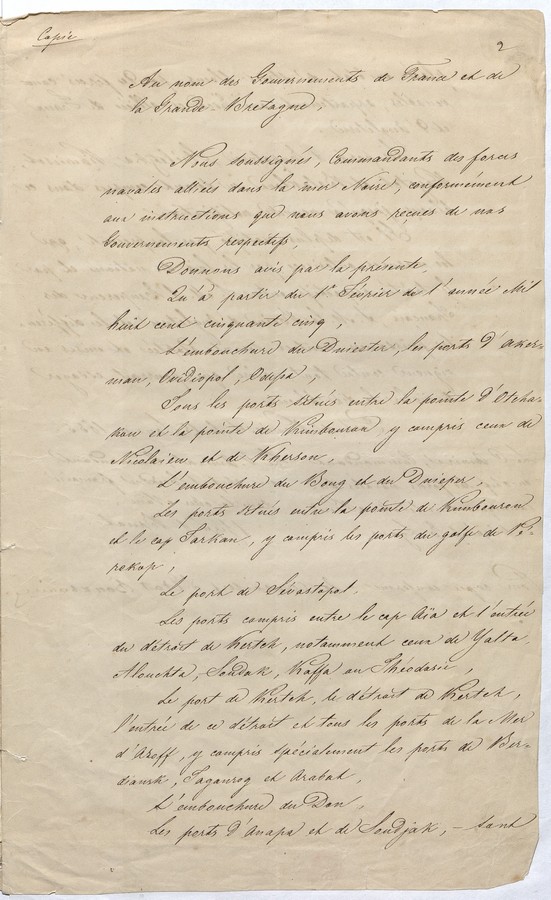 Copie
2
Au nom des Gouvernements de France et de
la Grande-Bretagne,
Nous soussignés, Commandants des forces
navales alliées dans la mer Noire, conformément
aux instructions que nous avons reçues de nos
Gouvernements respectifs,
Donnons avis par la présente,
Qu'à partir du 1er Février de l'année Mil
huit cent cinquante cinq,
L'embouchure du Dniester, les ports d'Aker-
man, Ovidiopol, Odessa,
Tous les ports situés entre la pointe d'Otcha-
kow et la pointe de Kimbouron y compris ceux de
Nicolaiew et de Kherson,
L'embouchure du Boug et du Dnieper,
Les ports situés entre la pointe de Kimbouron
et le cap Tarkan, y compris les ports du golfe de Pé-
rekop,
Le port de Sévastopol,
Les ports compris entre le cap Aïa et l'entrée
du détroit de Kertch, notamment ceux de Yalta,
Alouchta, Soudak, Kaffa ou Théodosie,
Le port de Kertch, le détroit de Kertch,
l'entrée de ce détroit et tous les ports de la Mer
d'Azoff, y compris spécialement les ports de Ber-
diansk, Taganrog et Arabat,
L'embouchure du Don,
Les ports d'Anapa et de Soudjak, - sont